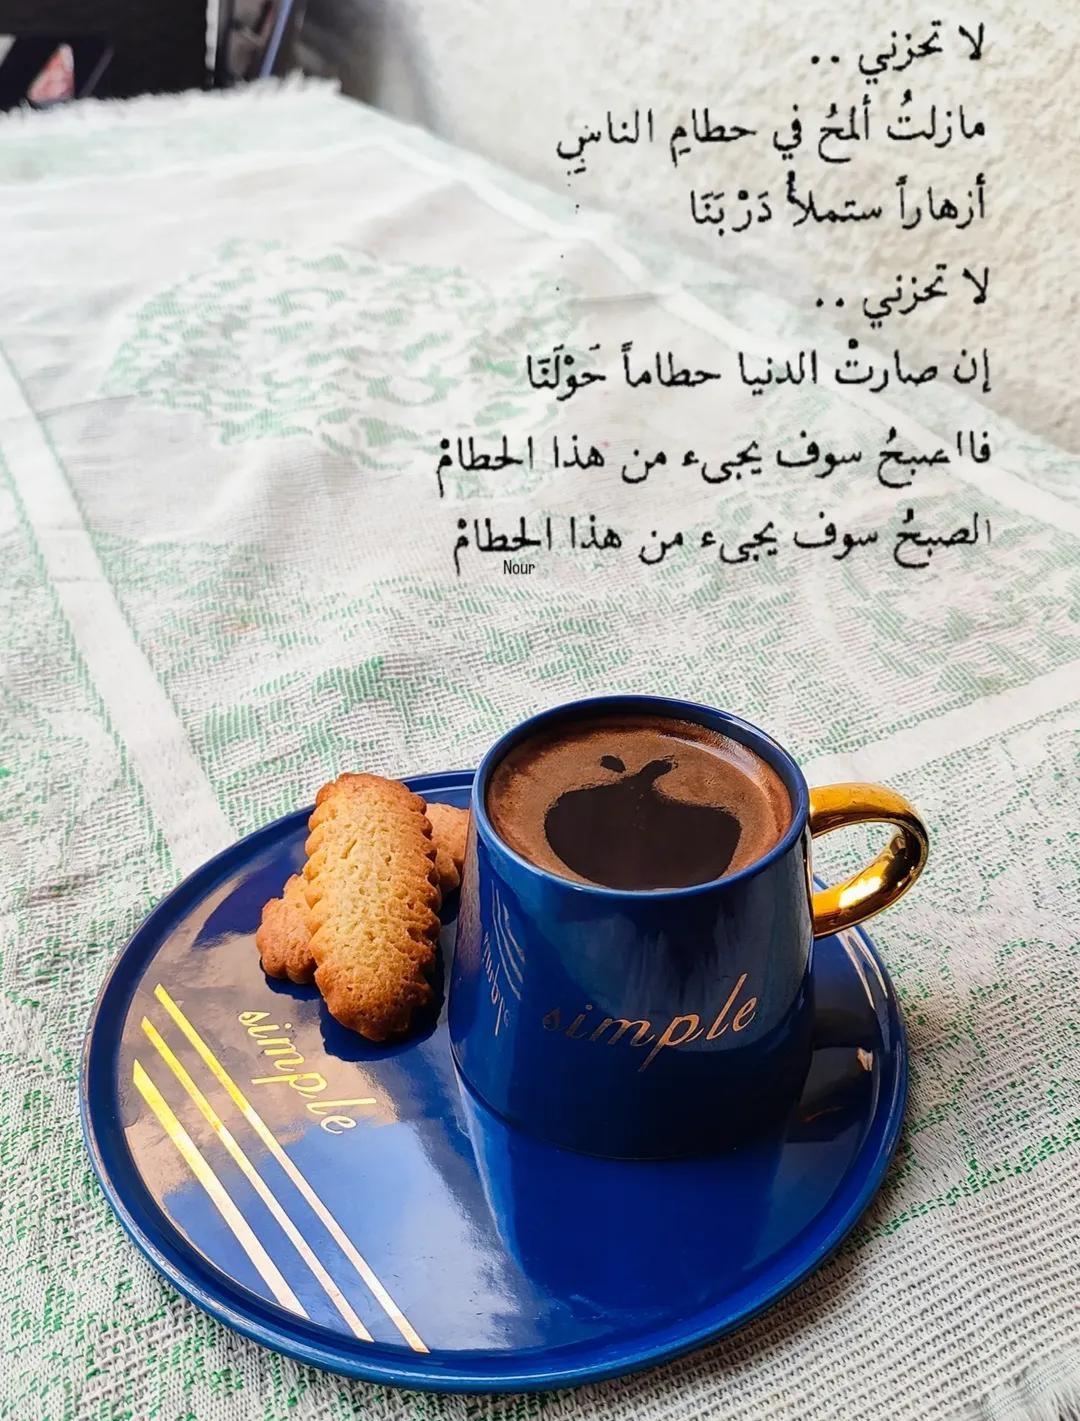 لا تحزني ..
مازلتُ ألمحُ في حطامِ الناسِ
أزهاراً ستملأُ دَرْبَنَا
لا تحزني ..
إن صارتْ الدنيا حطاماً حَوْلَنَا
فالصبحُ سوف يجىء من هذا الحطامْ
الصبحُ سوف يجىء من هذا الحطامْ
Nour
simple
simple